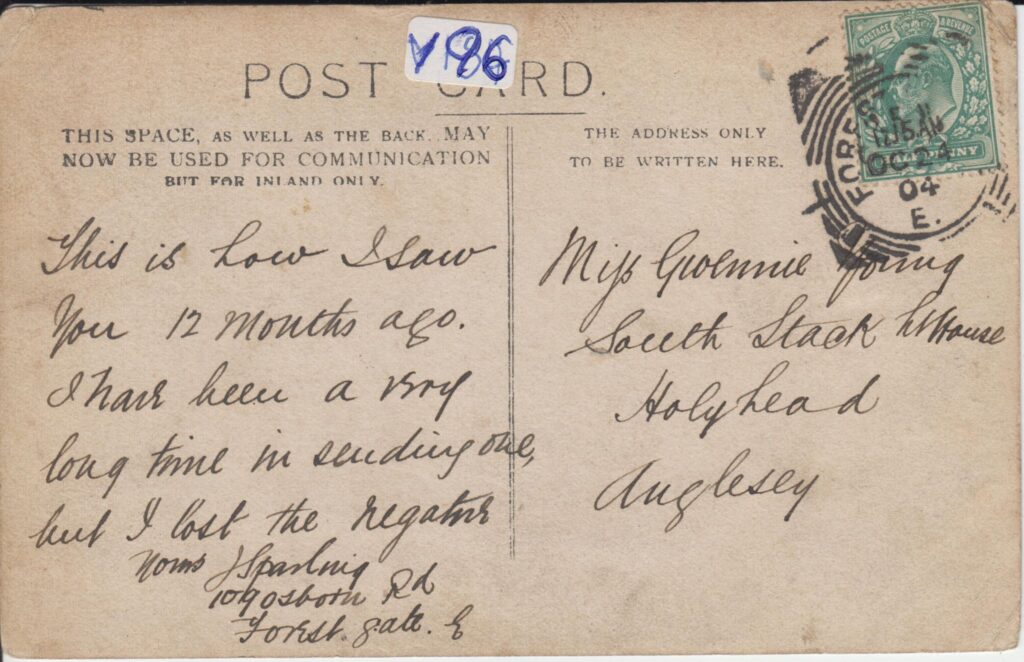 POST CARD.
THIS SPACE, AS WELL AS THE BACK, MAY
NOW BE USED FOR COMMUNICATION
BUT FOR INLAND ONLY.
THE ADDRESS ONLY
TO BE WRITTEN HERE.
POSTAGE & REVENUE
HALFPENNY
FOREST
12.15 AM
OC 24
04
E.
This is how I saw
You 12 Months ago.
I have been a very
long time in sending one,
but I lost the negative
Yours J Sparling
109 Osborn Rd
Forest. gate. E
Miss Gwennie Young
South Stack Lt House
Holyhead
Anglesey